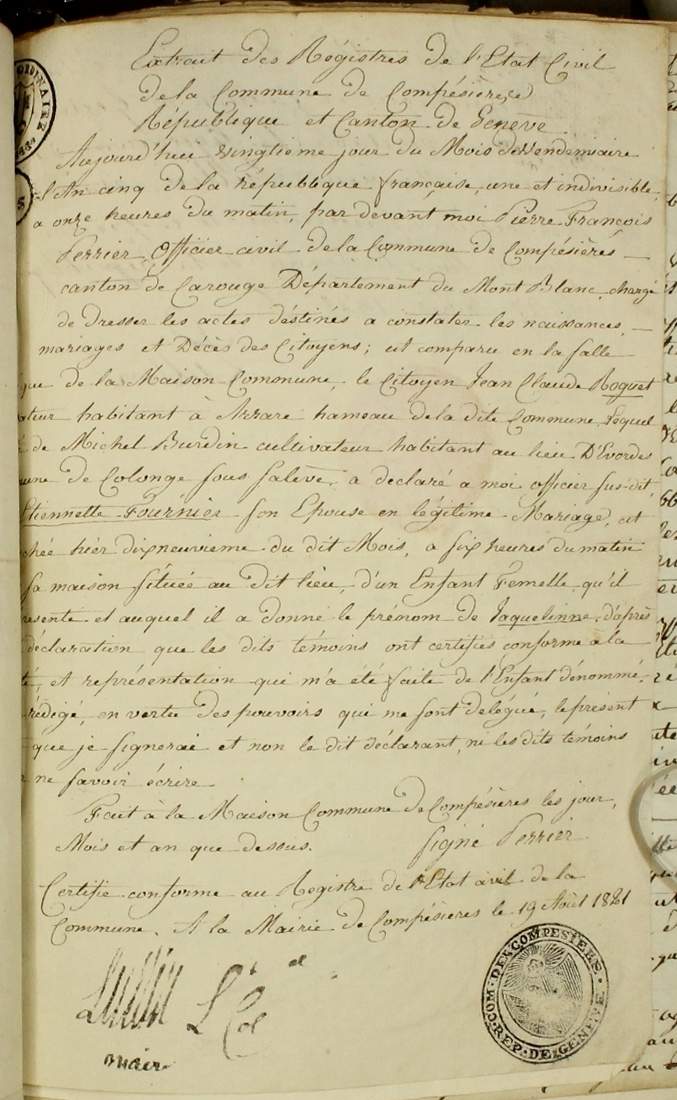 Extrait des Régistres de l'Etat Civil
de la Commune de Compésières
République et Canton de Genève
Aujourd'hui vingtieme jour du Mois de Vendemiaire
l'An cinq de la république française, une et indivisible,
a onze heures du matin, par devant moi Pierre François
Perrier Officier civil de la Commune de Compésières
canton de Carouge Département du Mont Blanc, chargé
de dresser les actes déstinés a constater les naissances,
mariages et Décès des Citoyens; est comparu en la salle
que de la Maison Commune, le Citoyen Jean Claude Roguet
ateur habitant à Arrare hameau de la dite Commune, Lequel
de Michel Burdin cultivateur habitant au lieu D'Evordes
une de Colonge sous Salève, a déclaré a moi officier sus-dit
Etiennette Fournier son Epouse en légitime Mariage, est
chée hier dixneuvieme du dit Mois, a six heures du matin
sa maison située au dit lieu, d'un Enfant Femelle qu'il
resente et auquel il a donné le prénom de Jaquelinne, d'après
déclaration que les dits témoins ont certifiés conforme a la
té, et représentation qui m'a été faite de l'Enfant dénommé,
rédigé, en vertu des pouvoirs qui me sont delégué, le présent
que je signerai et non le dit déclarant, ni les dits témoins
ne savoir écrire.
Fait à la Maison Commune de Compésières les jour,
Mois et an que dessus. signé Perrier
Certifié conforme au Registre de l'Etat civil de la
Commune. A la Mairie de Compésieres le 19 Août 1821
maire
COM: DE COMPESIERE.
REP. DE GENEVE.